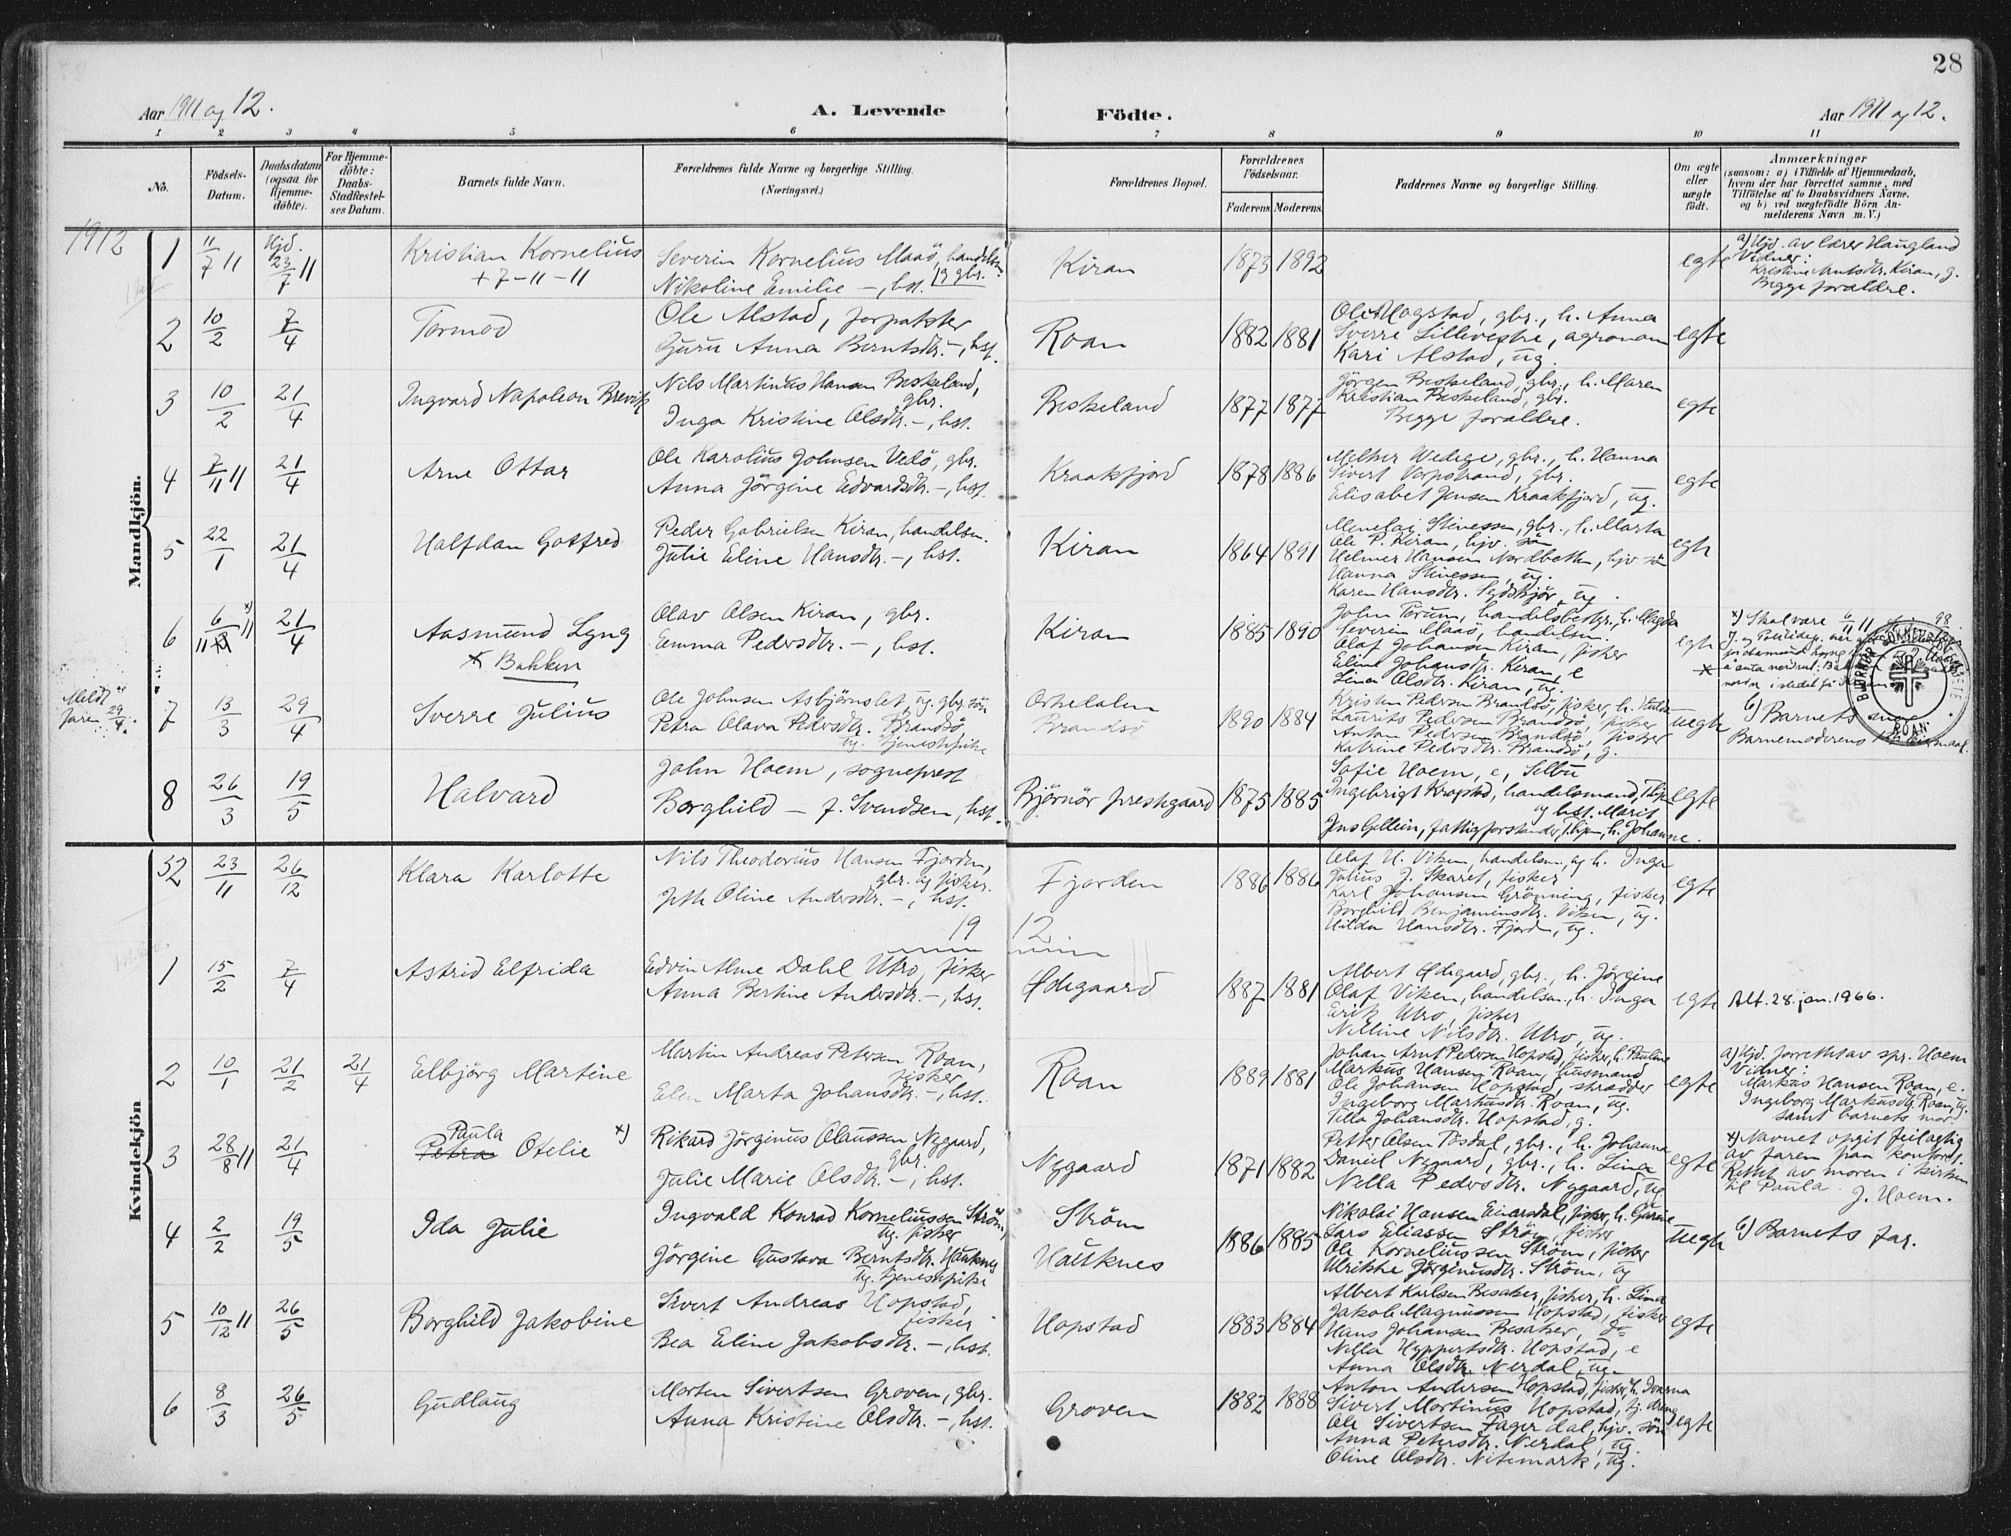 28
Aar 1911 og 12.
A. Levende
Födte.
Aar 1911 og 12.
1 2 3 4 5 6 7 8 9 10 11
No.
Födsels-Datum.
Daabsdatum (ogsaa for Hjemme-döbte).
For Hjemme-döbte: Daabs-Stadfæstel-ses Datum.
Barnets fulde Navn.
Forældrenes fulde Navne og borgerlige Stilling.
(Næringsvei.)
Forældrenes Bopæl.
Forældrenes Födselsaar.
Faderens Moderens
Faddernes Navne og borgerlige Stilling.
Om ægte eller uægte födt.
Anmærkninger
(saasom: a) i Tilfælde af Hjemmedaab, hvem der har forrettet samme, med Tilföielse af to Daabsvidners Navne, og b) ved uægtefödte Börn An-melderens Navn m. V.)
1912
Mandkjön.
1 11/7 11 Hjd. 23/7 11 Kristian Kornelius
+ 7-11-11
Severin Kornelius Maaö, handelsm.
Nikoline Emilie -, hst. 19 gbr.
Kiran 1873 1892 egte
a) Hjd. av lærer Haugland
Vidner:
Kristine Arntsdtr. Kiran, g.
Begge forældre.
2 10/2 7/4 Tormod
Ole Alstad, forpakter
Guru Anna Berntsdtr. -, hst.
Roan 1882 1881
Ole Mogstad, gbr., h. Anna
Sverre Lillevestre, agronom
Kari Alstad, ug.
egte
3 10/2 21/4 Ingvard Napoleon Brevik
Nils Martinus Hansen Beskeland,
gbr.
Inga Kristine Olsdtr. -, hst.
Beskeland 1877 1877
Jörgen Beskeland, gbr., h. Maren
Kristian Beskeland, gbr.
Begge forældre.
egte
4 7/11 11 21/4 Arne Ottar
Ole Karolius Johnsen Vedö, gbr.
Anna Jörgine Edvardsdtr. -, hst.
Kraakfjord 1878 1886
Melker Wedege, gbr., h. Hanna
Sivert Vorpstrand, gbr.
Elisabet Jensen Kraakfjord, ug.
egte
5 22/1 21/4 Halfdan Gotfred
Peder Gabrielsen Kiran, handelsm.
Julie Eline Hansdtr. -, hst.
Kiran 1864 1891
Menelai Stinessen, gbr., h. Marta
Ole P. Kiran, hjv. sön
Helmer Hansen, hjv sön
Hanna Stinessen, ug.
Karen Hansdtr. Sydskjör, ug.
egte
6 6/11 11 x) 21/4 Aasmund Lyng
x Bakken
Olav Olsen Kiran, gbr.
Emma Pedersdtr. -, hst.
Kiran 1885 1890
John Terum, handelsbestyr., h. Magda
Severin Maaö, handelsm.
Olaf Johansen Kiran, fisker
Eline Johansdtr. Kiran, e
Lina Olsdtr. Kiran, ug.
egte
x) Skal være 6/11 11
BJØRNØR SOKNEPRESTEMBETE
ROAN
Meldt
faren 29/4.
7 13/3 29/4 Sverre Julius
Ole Johnsen Asbjörnslet, ug. gbr. sön
Petra Olava Pedersdtr. Brandsö,
ug. tjenestepike
Orkedalen
Brandsö 1890 1884
Kristen Pedersen Brandsö, fisker, h. Hulda
Laurits Pedersen Brandsö, fisker
Anton Pedersen Brandsö, fisker
Katrine Pedersdtr. Brandsö, g.
uegte
b) Barnets
Barnemoderens
8 26/3 19/5 Halvard
John Hoem, sogneprest
Borghild - f. Svendsen, hst.
Björnör prestegaard 1875 1885
Sofie Hoem, e, Selbu
Ingebrigt Krogstad, handelsmand, Thjem
og hst. Marit
Jens Gellein, fattigforstander, Thjem, h. Johanne.
egte
Kvindekjön
52 23/11 26/12 Klara Karlotte
Nils Theodorius Hansen Fjorden,
gbr. og fisker.
Oline Andersdtr. -, hst.
Fjorden 1886 1886
Olaf H. Viken, handelsm. og h. Inga
Julius J. Skaret, fisker
Karl Johansen Grönning, fisker
Borghild Benjaminsdtr. Viken, ug.
Hilda Hansdtr. Fjord, ug.
egte
19 12
1 15/2 7/4 Astrid Elfrida
Edvin Alme Dahl Utro, fisker
Anna Bertine Andersdtr. -, hst.
Ødegaard 1887 1881
Albert Ødegaard, gbr., h. Jörgine
Olaf Viken, handelsm., h. Inga
Erik Utro, fisker
Nilline Nilsdtr. Utro, ug.
egte Att. 28. jan. 1966.
2 10/1 21/2 21/4 Elbjörg Martine
Martin Andreas Petersen Roan,
fisker
Elen Marta Johansdtr. -, hst.
Roan 1889 1881
Johan Arnt Pedersen Hopstad, fisker, h. Pauline
Markus Hansen Roan, husmand
Ole Johansen Hopstad, skrædder
Ingeborg Markusdtr. Roan, ug.
Tilla Johansdtr. Hopstad, g.
egte
a) Hjd. forrettet av spr. Hoem
Vidner:
Markus Hansen Roan, e.
Ingeborg Markusdtr. Roan, ug.
samt barnets mor
3 28/8 11 21/4 Paula
Petra Otelie x)
Rikard Jörginus Olaussen Nygaard,
gbr.
Julie Marie Olsdtr. -, hst.
Nygaard 1871 1882
Petter Olsen Tösdal, gbr., h. Johanna
Daniel Nygaard, gbr., h. Lina
Nilla Pedersdtr. Nygaard, ug.
egte
x) Navnet opgit feilagtig
av faren paa kontoret.
Rettet av moren i kirken
til Paula J. Hoem.
4 2/2 19/5 Ida Julie
Ingvald Konrad Korneliussen Ström,
ug. fisker
Jörgine Gustava Berntsdtr. Hauknes
ug. tjenestepike
Ström
Hauknes 1886 1885
Nikolai Hansen Einarsdal, fisker, h. Gurine
Lars Eliassen Ström, fisker
Ole Korneliussen Ström, fisker
Ulrikke Jörginusdtr. Ström, ug
uegte b) Barnets far.
5 10/12 11 26/5 Borghild Jakobine
Sivert Andreas Hopstad,
fisker
Bea Eline Jakobsdtr. -, hst.
Hopstad 1883 1884
Albert Karlsen Besaker, fisker, h. Lina
Jakob Magnussen Hopstad, fisker
Hans Johansen Besaker, do
Nilla Hyppertsdtr. Hopstad, e
Anna Olsdtr. Nerdal, ug.
egte
6 8/3 26/5 Gudlaug
Morten Sivertsen Groven, gbr.
Anna Kristine Olsdtr. -, hst.
Groven 1882 1888
Anton Andersen Hopstad, fisker, h. Ivarna
Sivert Martinus Hopstad, tj. dreng
Ole Sivertsen Fagerdal, hjv. sön
Anna Petersdtr. Nerdal, ug.
Oline Olsdtr. Nitemark, ug.
egte